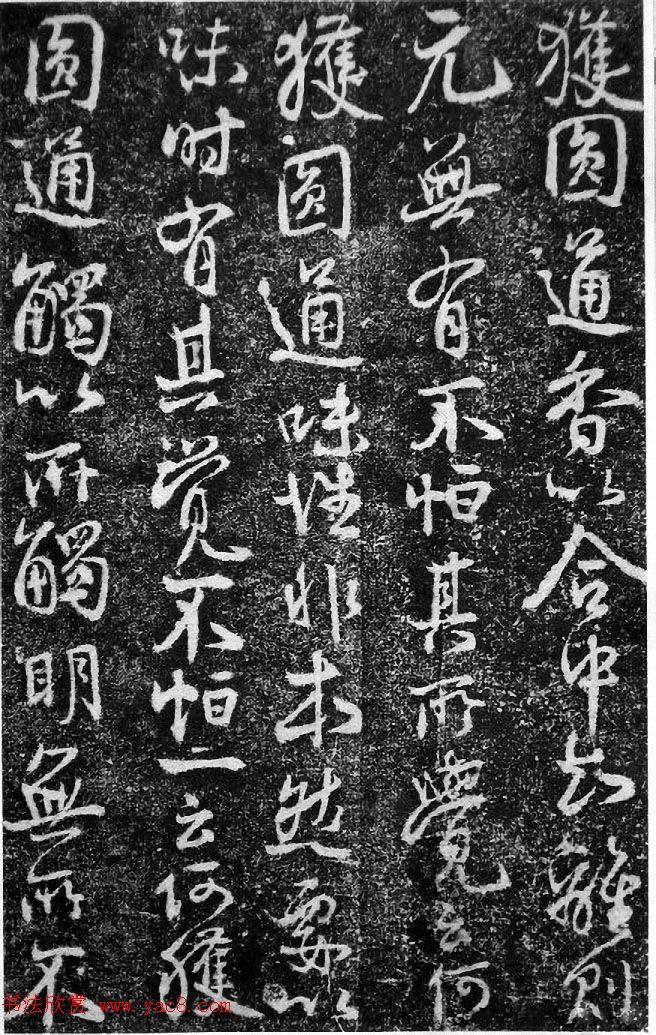 獲圓通香以合中知離則
元無有不恒其所覺云何
獲圓通味性非本然要以
味时有其覺不恒一云何獲
圓通觸以所觸明無所不
书法欣赏 www.yac8.com